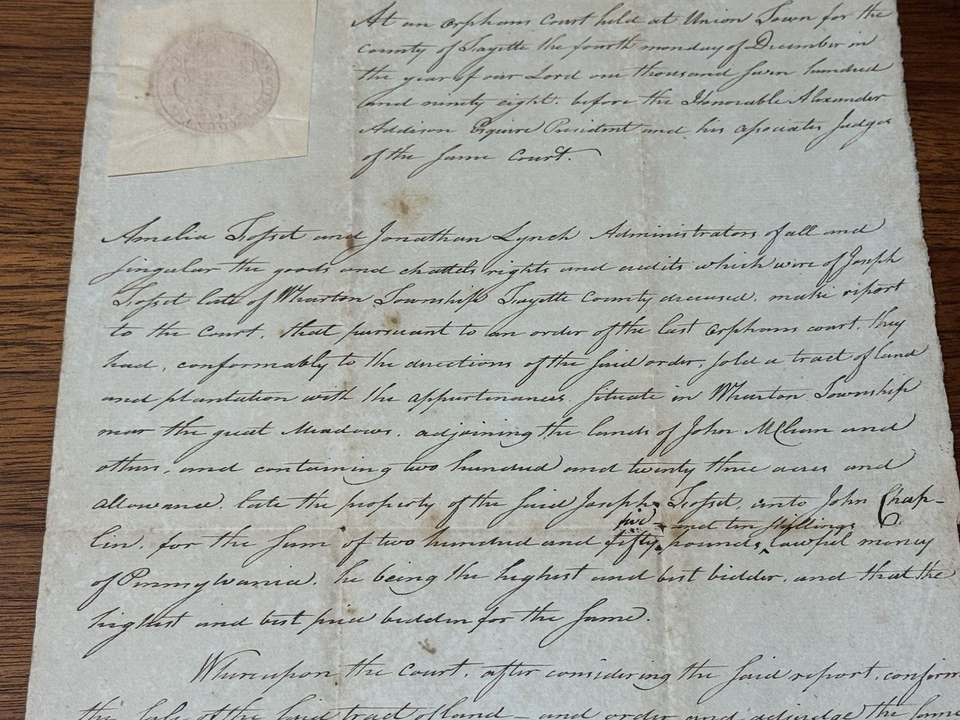 At an orphans Court held at Union Town for the
County of Fayette the fourth monday of December in
the year of our Lord one thousand seven hundred
and ninety eight. before the Honorable Alexander
Addison Esquire President and his associates Judges
of the same Court.
Amelia Tosset and Jonathan Lynch Administrators of all and
singular the goods and chattels rights and credits which were of Joseph
Tosset late of Wharton Township Fayette County deceased, make report
to the court, that pursuant to an order of the last orphans court, they
had, conformably to the directions of the said order, sold a tract of land
and plantation with the appurtinances. situate in Wharton Township
near the great Meadows. adjoining the lands of John McClean and
others, and containing two hundred and twenty three acres and
allowance. late the property of the said Joseph Tosset, unto John Chap-
five and ten shillings
lin, for the sum of two hundred and fifty pounds lawful money
of Pennsylvania. he being the highest and best bidder, and that the
highest and best price bidden for the same.
Whereupon the court, after considering the said report, confirm
the sale of the said tract of land – and order and adjudge the same